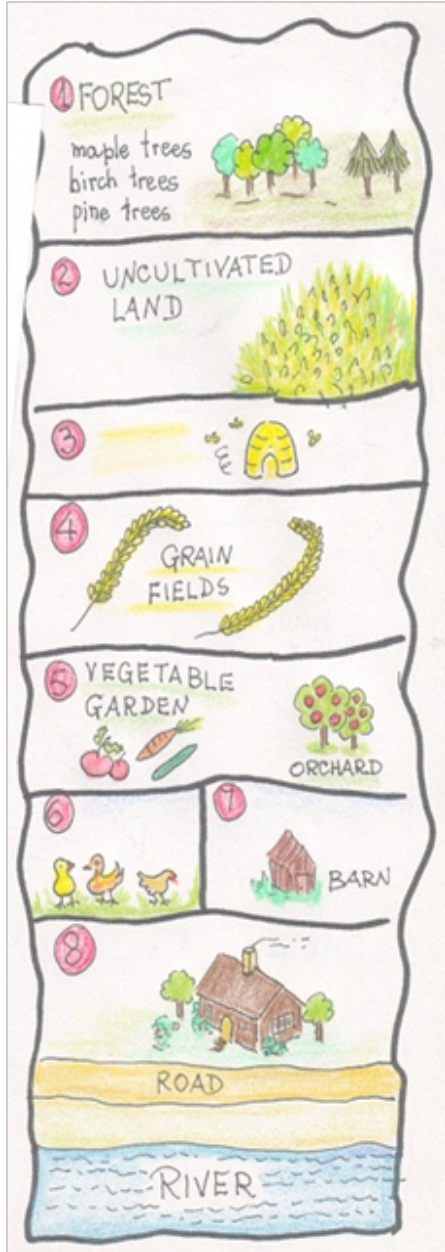 1 FOREST
maple trees
birch trees
pine trees
2 UNCULTIVATED
LAND
3
4
GRAIN
FIELDS
5 VEGETABLE
GARDEN
ORCHARD
6
7
BARN
8
ROAD
RIVER